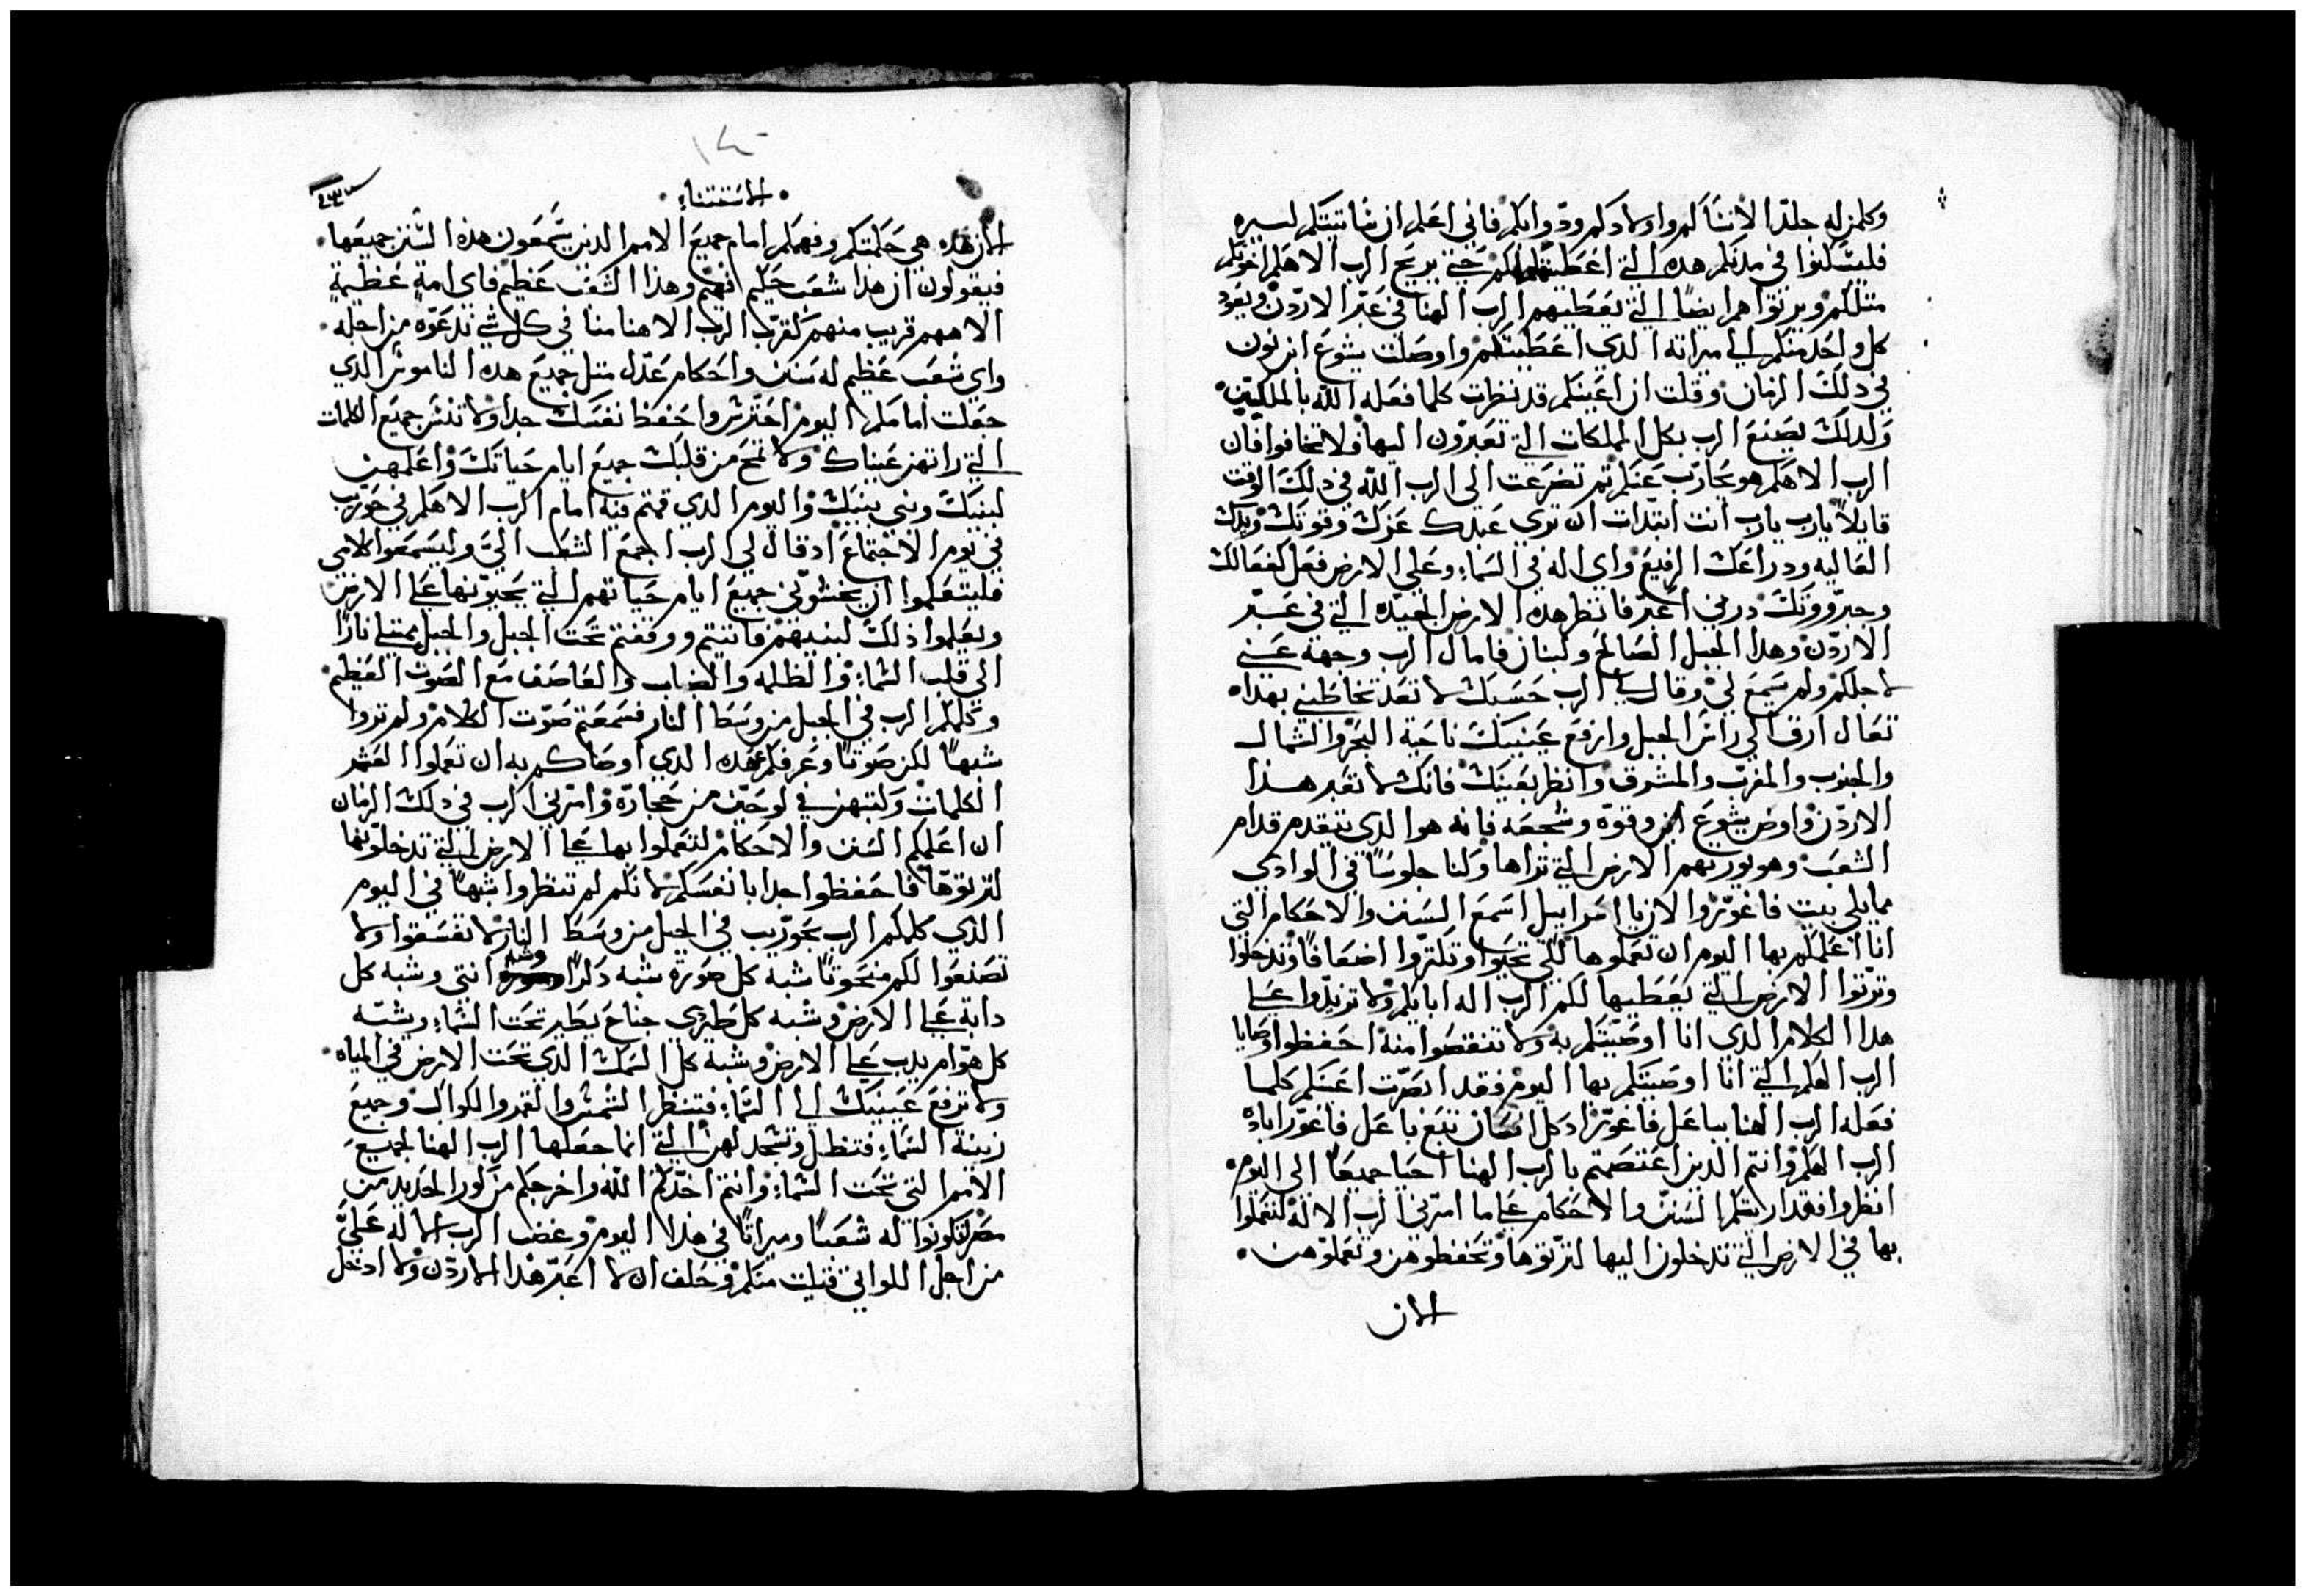 وكلمن له جلدا الا نسا كم واولادكم ودوابكم فاني اعلم ان ماشيتكم كثيره
فليسكنوا في مدنكم هذه التي اعطيتها لكم حتي يريح الرب الاهكم اخوتكم
مثلكم ويرثوا هم ايضا التي يعطيهم الرب الهنا في عبر الاردن ويعود
كل واحد منكم الي ميراثه الدي اعطيتكم واوصلت يشوع ابن نون
في دلك الزمان وقلت ان اعينكم قد نظرت كلما فعله الله بالملكين
ولدلك يصنع الرب بكل المملكات التي تعبرون اليها ولا تخافوا فان
الرب الاهكم هو يحارب عنكم ثم تضرعت الي الرب الله في دلك الوقت
قايلا يارب يارب انت ابتدات ان تري عبدك عزك وقوتك ويدك
العاليه ودراعك الرفيع واي اله في السماء وعلي الارض فعل كفعالك
وجبروونك درني اعبر فانظر هده الارض الجيده التي في عبر
الاردن وهدا الجبل الصالح ولبنان فامال الرب وجهه عني
لاجلكم ولم يسمع لي وقال لي الرب حسبك لا تعد تخاطبني بهدا
تعال ارق الي راس الجبل وارفع عينيك ناحية البحر والشمال
والجنوب والمغرب والمشرق وانظر بعينيك فانك لا تعبر هذا
الاردن واوص يشوع ابن وقوه وشجعه فانه هو الدي يتقدم قدام
الشعب وهو يورثهم الارض التي تراها وكنا جلوسا في الوادي
مما يلي بيت فاغور والان يا اسراييل اسمع السنن والاحكام التي
انا اعلمكم بها اليوم ان تعملوها لكي تحيوا وتكثروا اضعافا وتدخلوا
وترثوا الارض التي يعطيها لكم الرب اله اباكم ولا تزيدوا علي
هدا الكلام الدي انا اوصيتكم به ولا تنقصوا منه احفظوا وصايا
الرب الهكم التي انا اوصيتكم بها اليوم فقد ابصرت اعينكم كلما
فعله الرب الهنا بباعل فاغور اد كل انسان تبع باعل فاغور اباده
الرب الهكم وانتم الدين اعتصمتم بالرب الهنا احيا جميعا الي اليوم
انظروا فقد اريتكم السنن والاحكام علي ما امرني الرب الاله لتعملوا
بها في الارض التي تدخلون اليها لترثوها وتحفظوهن وتعملوهن
الان
١٤٠
الاستثناء
الان هده هي حكمتكم وفهمكم امام جميع الامم الدين يسمعون هذه السنن جميعها
فيقولون ان هدا شعب حكيم فهيم وهدا الشعب عظيم فاي امة عظيمة
الاههم قريب منهم كقرب الرب الاهنا منا في كل شي ندعوه من اجله
واي شعب عظيم له سنن واحكام عدل مثل جميع هده الناموس الدي
جعلت امامكم اليوم احترس واحفظ نفسك جدا ولا تنس جميع الكلمات
التي راتهن عيناك ولا تمح من قلبك جميع ايام حياتك واعلمهن
لبنيك وبني بنيك واليوم الدي قمتم فيه امام الرب الاهكم في حوريب
في يوم الاجتماع اد قال لي الرب اجمع الشعب الي وليسمعوا كلامي
فليتعلموا ان يخشوني جميع ايام حياتهم التي يحيونها علي الارض
ويعلموا ذلك لبنيهم فاتيتم ووقفتم تحت الجبل والجبل يمتلي نارا
الي قلب السماء والظلمه والضباب والعاصف مع الصوت العظيم
وكلمكم الرب في الجبل من وسط النار فسمعتم صوت الكلام ولم تروا
شبها لكن صوتا وعرفكم عهده الدي اوصاكم به ان تعملوا العشر
الكلمات وكتبهن في لوحين من حجاره وامرني الرب في دلك الزمان
ان اعلمكم السنن والاحكام لتعملوا بها علي الارض التي تدخلونها
لترثوها فاحفظوا جدا بانفسكم لانكم لم تنظروا شبها في اليوم
الذي كلمكم الرب بحوريب في الجبل من وسط النار لا تفسقوا ولا
تصنعوا لكم منحوتا شبه كل صوره شبه دكرا وشبه انثي وشبه كل
دابة علي الارض وشبه كل طير دي جناح يطير تحت السماء وشبه
كل هوام يدب علي الارض وشبه كل السمك الدي تحت الارض في المياه
ولا ترفع عينيك الي السماء فتنظر الشمس والقمر والكواكب وجميع
زينة السماء فتظل وتسجد لهن التي انما جعلها الرب الهنا لجميع
الامم التي تحت السماء وانتم اخدكم الله واخرجكم من كور الحديد من
مصر لتكونوا له شعبا وميراثا في هدا اليوم وغضب الرب الاله علي
من اجل اللواتي قيلت منكم وحلف ان لا اعبر هذا الاردن ولا ادخل